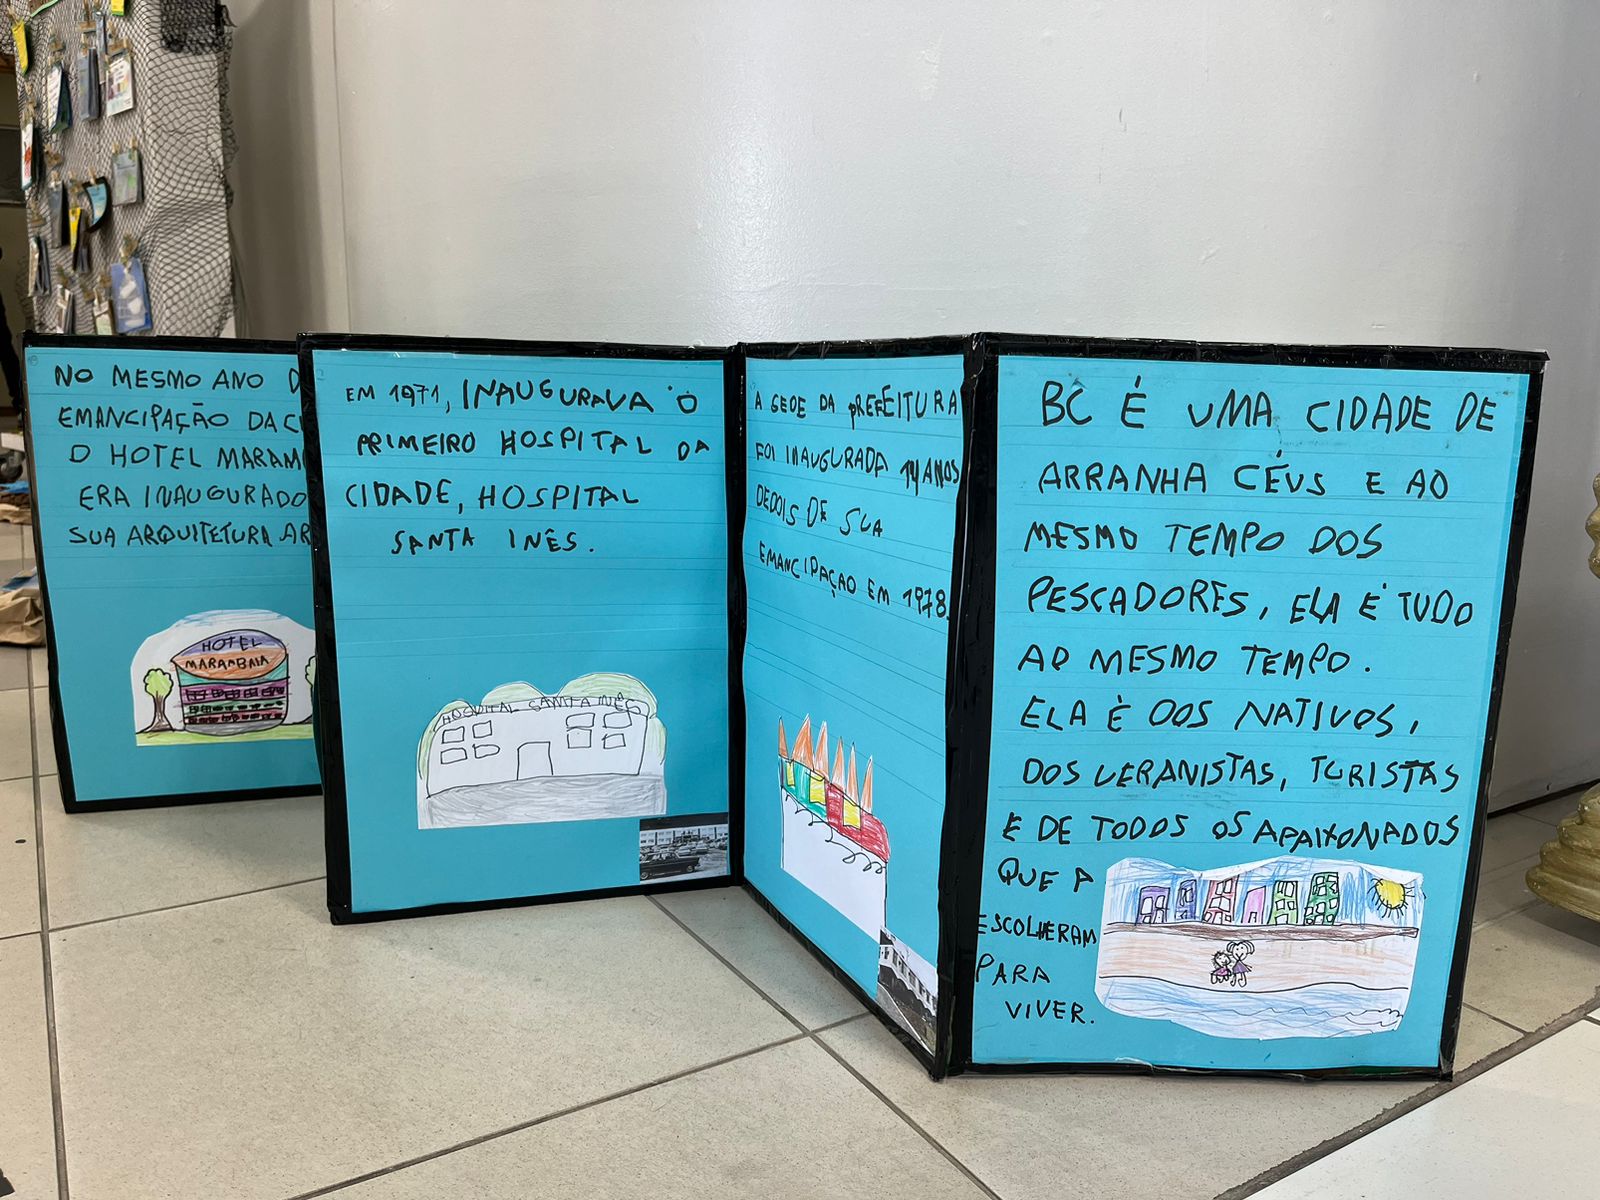 NO MESMO ANO D
EMANCIPAÇÃO DA C
O HOTEL MARAM
ERA INAUGURADO
SUA ARQUITETURA AR
HOTEL
MARAMBAIA
EM 1971, INAUGURAVA O
PRIMEIRO HOSPITAL DA
CIDADE, HOSPITAL
SANTA INÊS.
HOSPITAL SANTA INÊS
A SEDE DA PREFEITURA
FOI INAUGURADA 14 ANOS
DEPOIS DE SUA
EMANCIPAÇÃO EM 1978.
BC É UMA CIDADE DE
ARRANHA CÉUS E AO
MESMO TEMPO DOS
PESCADORES, ELA É TUDO
AO MESMO TEMPO.
ELA É DOS NATIVOS,
DOS VERANISTAS, TURISTAS
E DE TODOS OS APAIXONADOS
QUE A
ESCOLHERAM
PARA
VIVER.